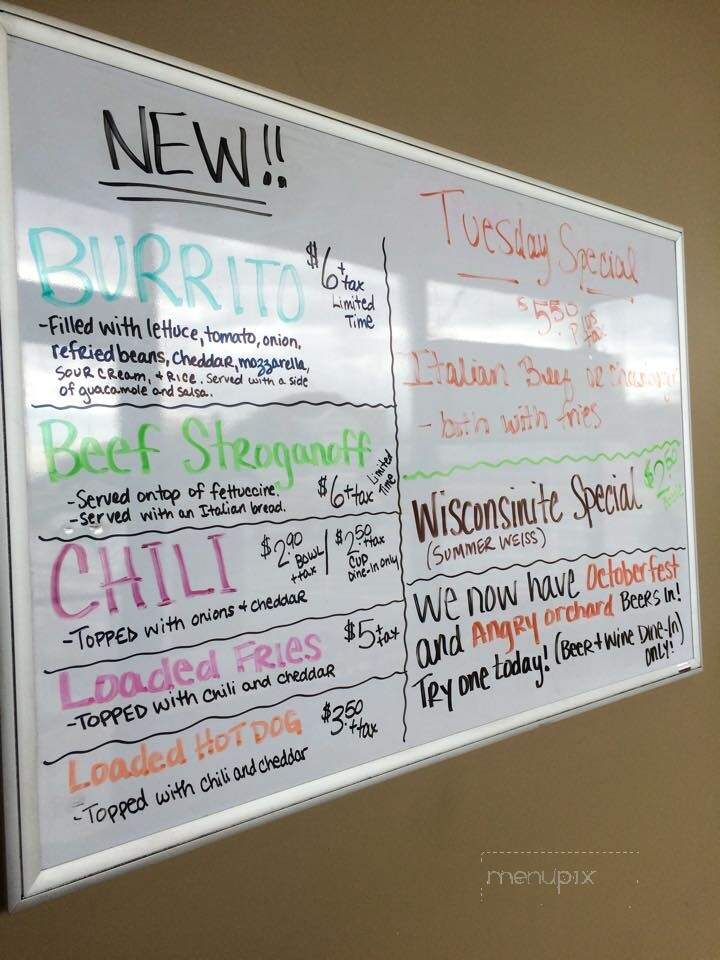 NEW!!
BURRITO $6 + tax
Limited
Time
-Filled with lettuce, tomato, onion,
refried beans, cheddar, mozzarella,
sour cream, + rice. Served with a side
of guacamole and salsa.
Beef Stroganoff
-Served ontop of fettuccine.
-Served with an Italian bread.
$6+tax Limited Time
CHILI $2.90 Bowl +tax / $2.50 +tax Cup
Dine-in only
-TOPPED with onions + cheddar
Loaded Fries $5+tax
-TOPPED with chili and cheddar
Loaded HOT DOG $3.50 +tax
-Topped with chili and cheddar
Tuesday Special
$5.50 plus tax
Italian Beef or
- both with fries
Wisconsinite Special
(SUMMER WEISS)
We now have Octoberfest
and Angry orchard Beers In!
Try one today! (Beer + Wine Dine-In)
ONLY!
menupix